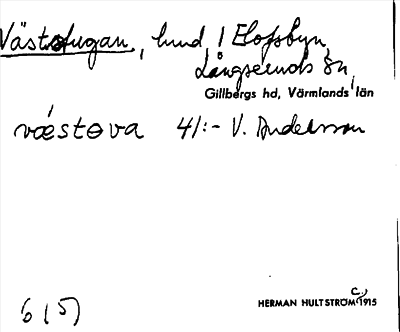 Väststugan, lund, / Elofsbyn,
Långseruds sn,
Gillbergs hd, Värmlands län
væstova 41:- V. Andersson
C.)
6 (5) HERMAN HULTSTRÖM 1915